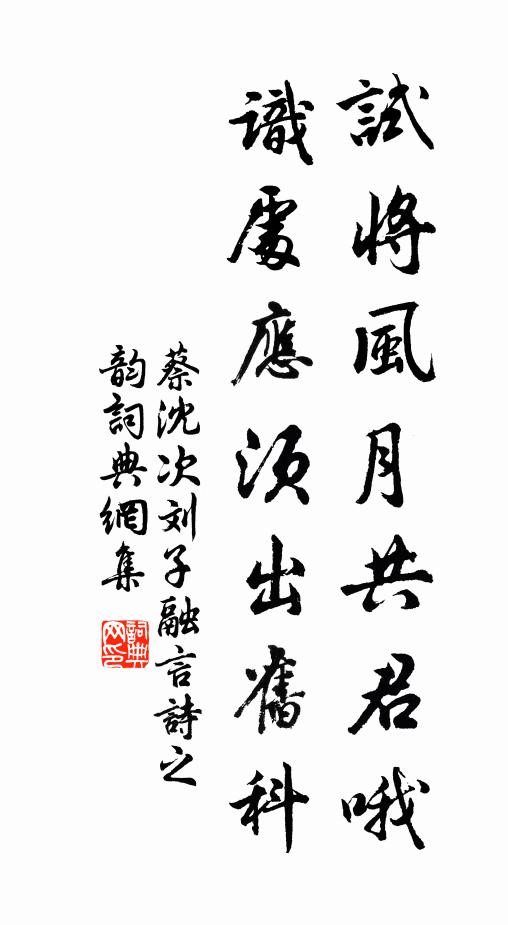 試將風月共君哦
識處應須出舊科
蔡沈次刘子融言詩之
韵詞典網集
詞典網印